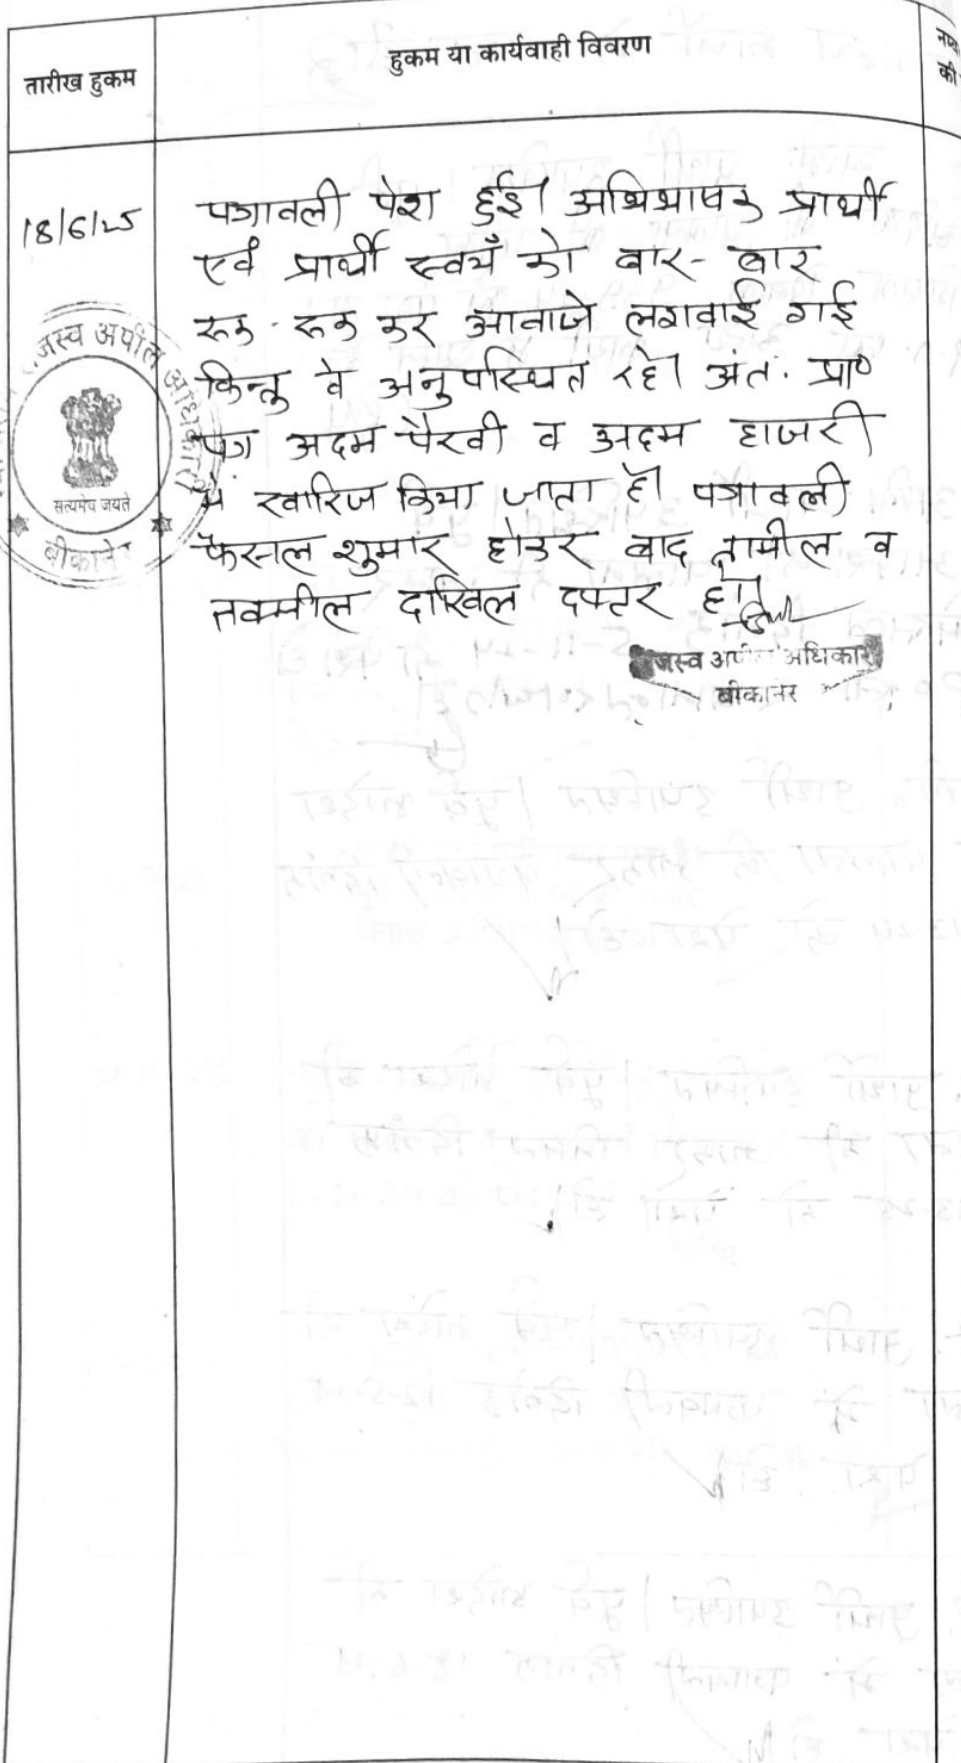 तारीख हुकम
हुकम या कार्यवाही विवरण
की
18/6/25
पत्रावली पेश हुई। अभिभाषक प्रार्थी
एवं प्रार्थी स्वयं को बार-बार
रूक-रूक कर आवाजे लगवाई गई
किन्तु वे अनुपस्थित रहे। अंत: प्रा०
पत्र अदम पैरवी व अदम हाजरी
में खारिज किया जाता है। पत्रावली
फैसल शुमार होकर बाद तामील व
तकमील दाखिल दफ्टर हो।
जस्व अपील अधिकारी
सत्यमेव जयते
बीकानेर
जस्व अपील अधिकारी
बीकानेर